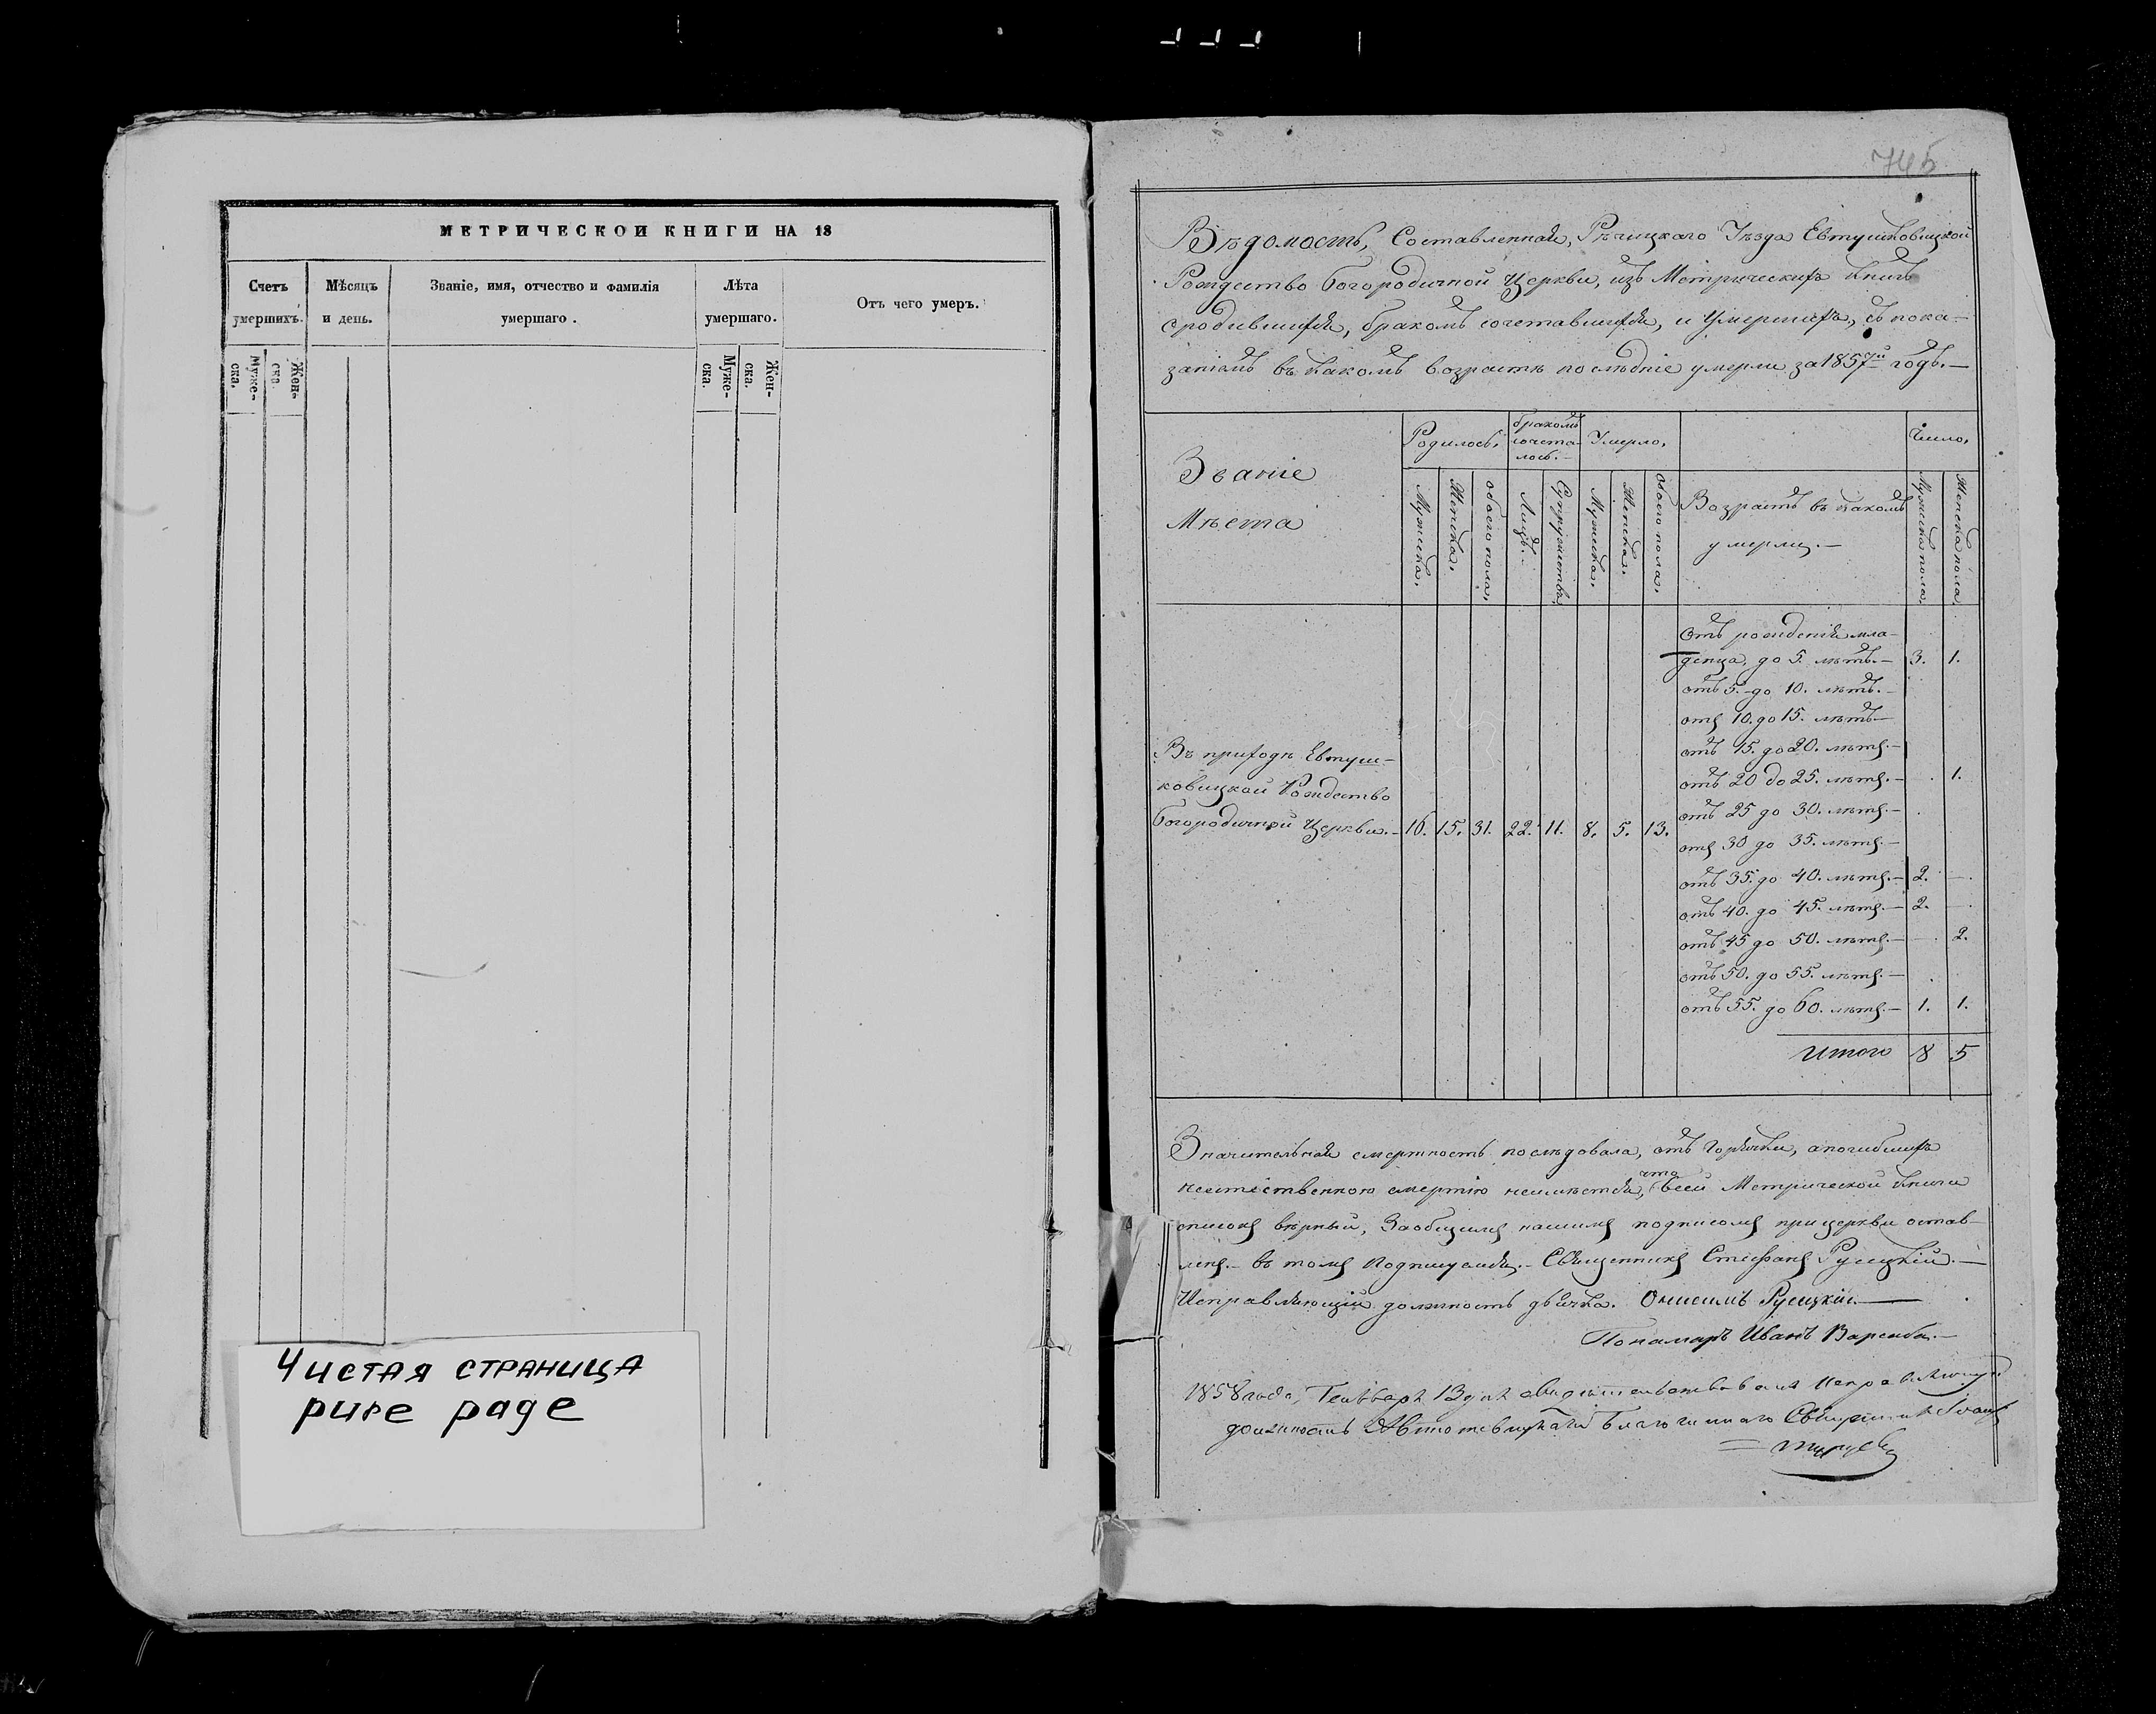 МЕТРИЧЕСКОЙ КНИГИ НА 18
Счетъ умершихъ.
Муже-
ска.
Жен-
ска.
Мѣсяцъ
и день.
Званіе, имя, отчество и фамилія
умершаго.
Лѣта
умершаго.
Муже-
ска.
Жен-
ска.
Отъ чего умеръ.
Чистая страница
pure page
745
Вѣдомость, Составленная, Рѣчицкаго Уѣзда Евтушковицкой
Рождество Богородичной Церкви, изъ Метрическихъ книгъ
о родившихся, бракомъ сочетавшихся, и Умершихъ, съ пока-
заніемъ въ какомъ возрастѣ послѣдніе умерли за 1857й годъ.—
Званіе
Мѣста
Родилось.
Мужеска.
Женска.
обоего пола.
бракомъ
сочета-
лось.—
Лицъ.
Супружествъ.
Умерло.
Мужеска.
Женска.
обоего пола.
Возрастъ въ какомъ
умерли.—
Число.
Мужеска пола.
Женска пола.
Въ приходѣ Евтуш-
ковицкой Рождество
Богородичной Церкви.— 16. 15. 31. 22. 11. 8. 5. 13.
Отъ рожденія мла-
денца, до 5. лѣтъ.— 3. 1.
отъ 5.— до 10. лѣтъ.—
отъ 10. до 15. лѣтъ—
отъ 15. до 20. лѣтъ.—
отъ 20 до 25. лѣтъ.— . 1.
отъ 25 до 30. лѣтъ.— .
отъ 30 до 35. лѣтъ.—
отъ 35. до 40. лѣтъ.— 2. —.
отъ 40. до 45. лѣтъ.— 2. —.
отъ 45 до 50. лѣтъ.— —. 2.
отъ 50. до 55. лѣтъ.— .
отъ 55. до 60. лѣтъ.— 1. 1.
Итого 8 5
Значительная смертность послѣдовала, отъ Горячки, а погибшихъ
неестественною смертію неимѣется, что всей Метрической книги
списокъ вѣрный, За общимъ нашимъ подписомъ при церкви остав-
ленъ.— въ томъ Подпишуемся.— Священникъ Стефанъ Русецкій.—
Исправляющій должность дьячка. Онисимъ Русецкій.—
Понамаръ Иванъ Варенба.—
1858 года, Генваря 13 дня свидѣтельствовалъ Исправляющій
должность Благочиннаго Священникъ